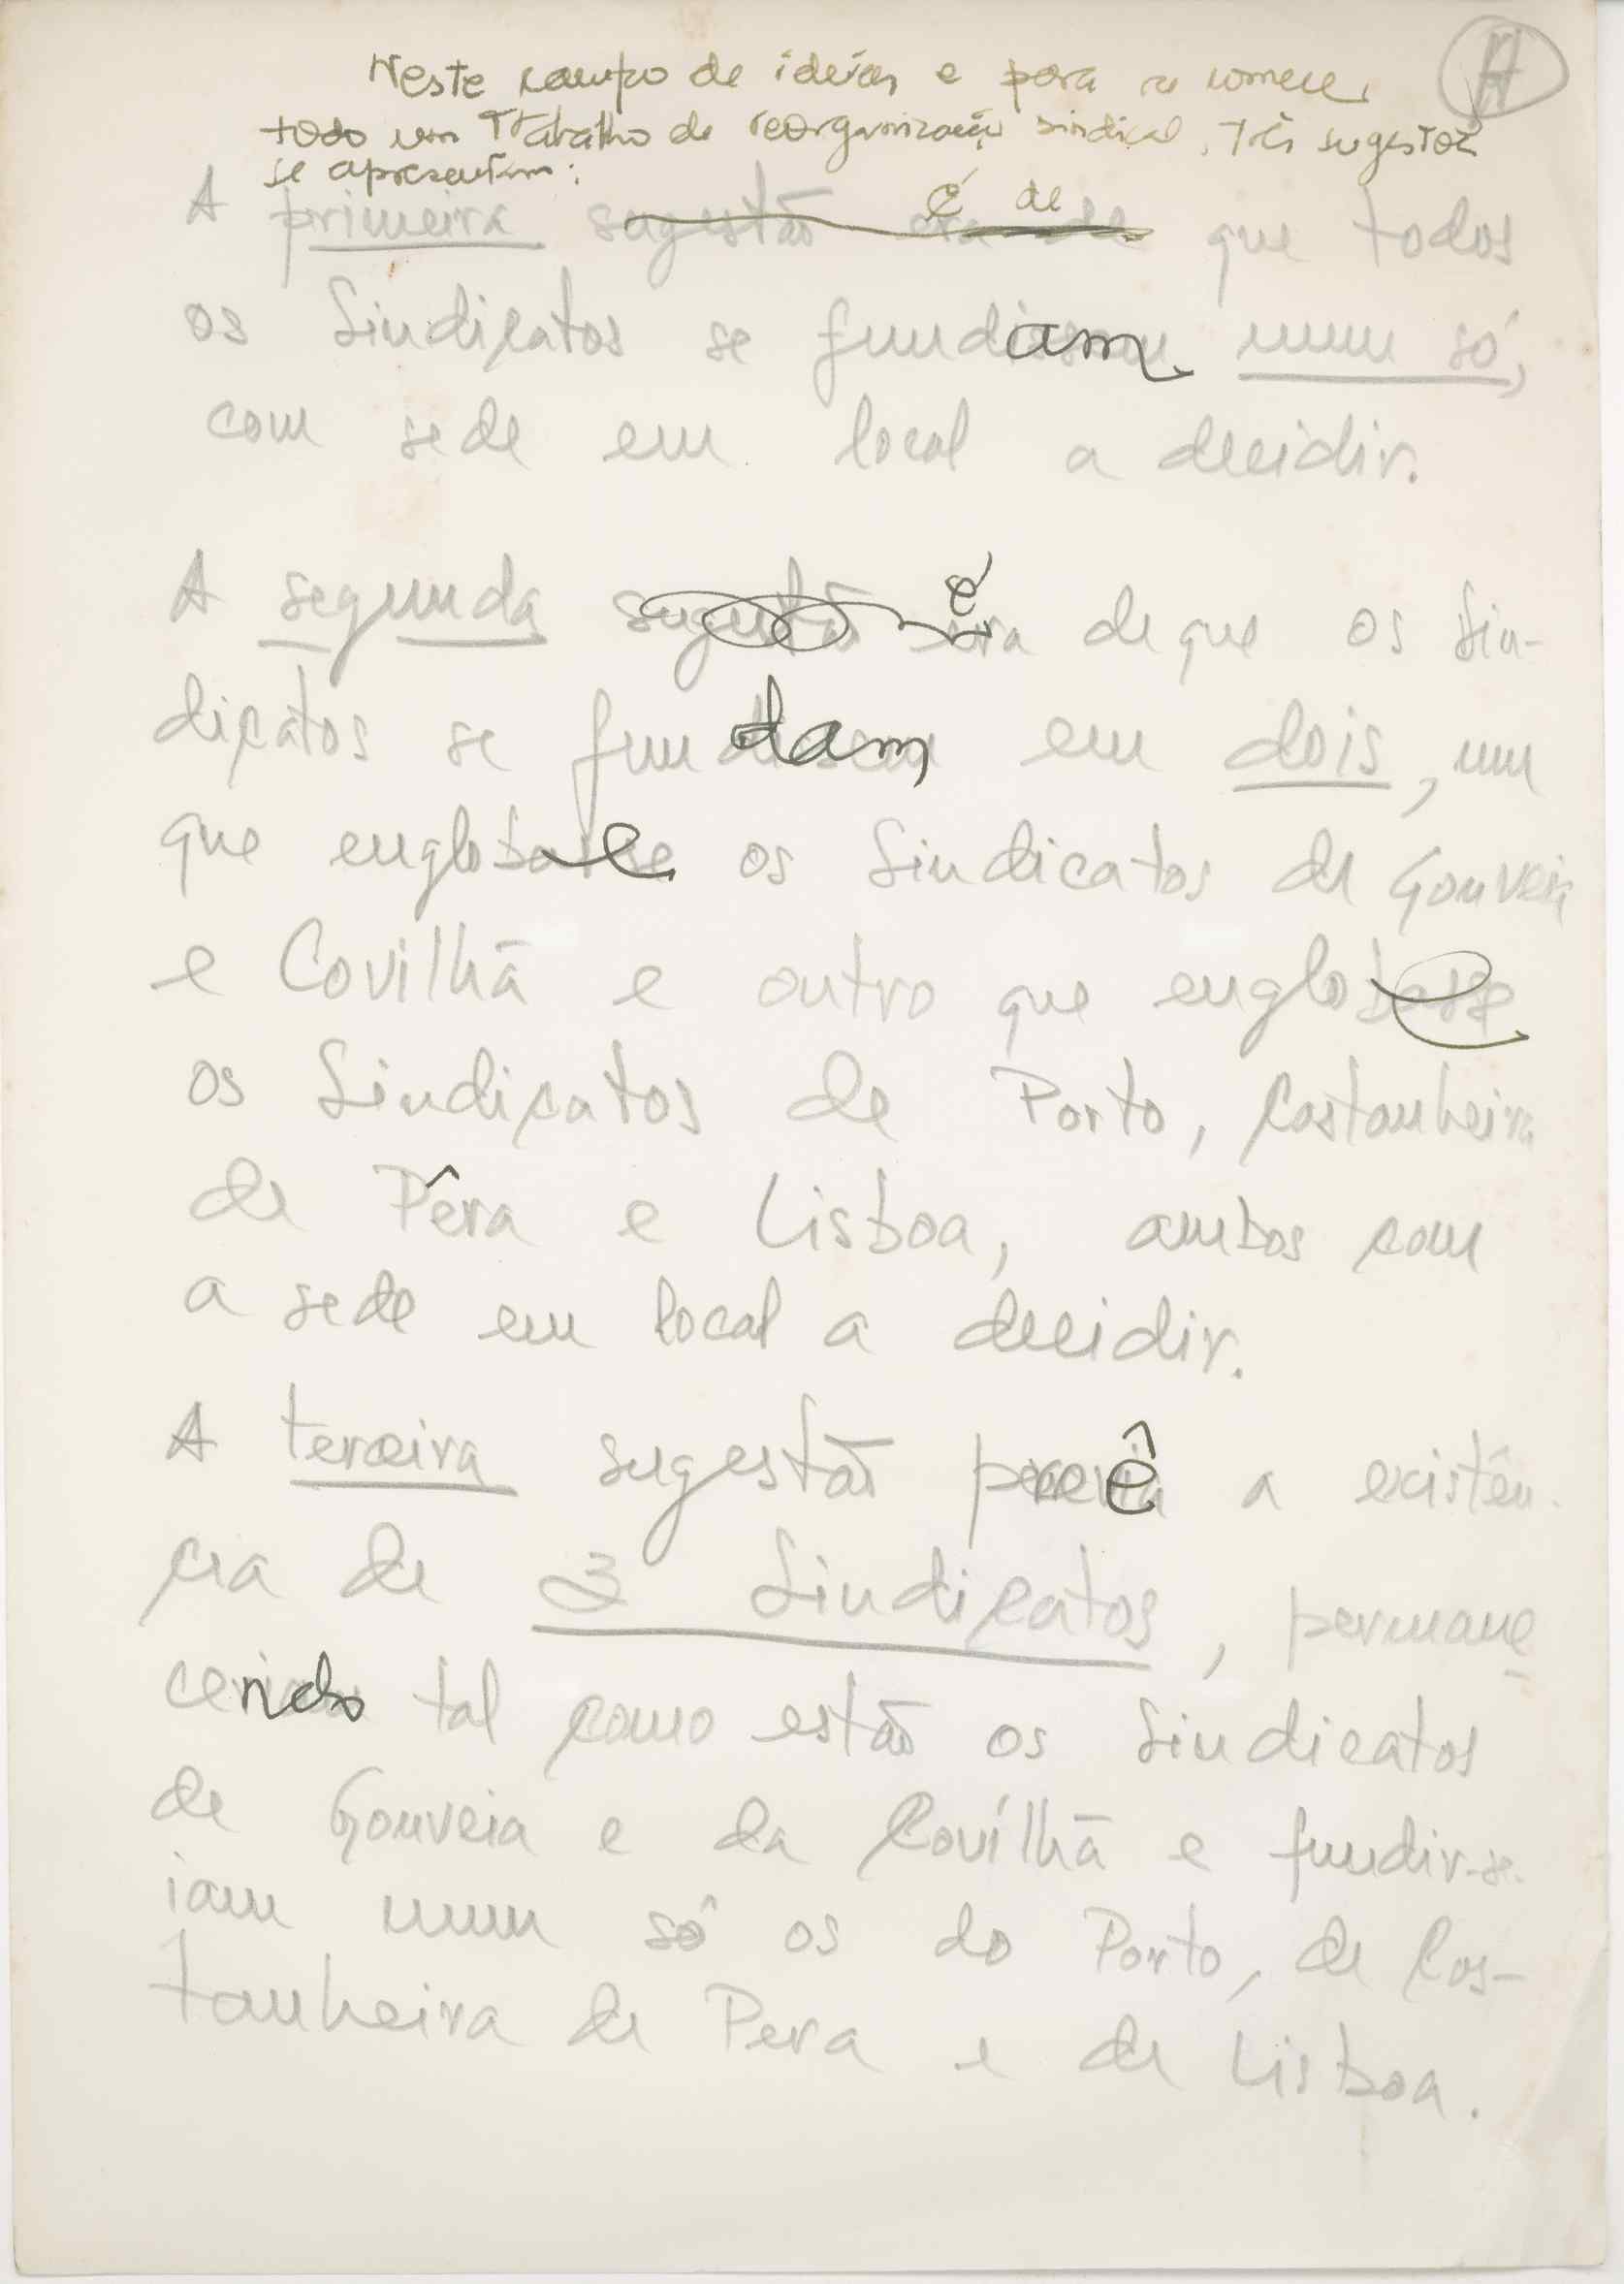 A
Neste campo de ideias e para se começar
todo um Trabalho de reorganização sindical, Três sugestões
se apresentam:
A primeira é de que todos
os Sindicatos se fundam num só,
com sede em local a decidir.
A segunda é de que os Sin-
dicatos se fundam em dois, um
que englobe os Sindicatos de Gouveia
e Covilhã e outro que englobe
os Sindicatos de Porto, Castanheira
de Pêra e Lisboa, ambos com
a sede em local a decidir.
A terceira sugestão prevê a existên-
cia de 3 Sindicatos, permane
cendo tal como estão os Sindicatos
de Gouveia e da Covilhã e fundir-se-
iam num só os do Porto, de Cas-
tanheira de Pera e de Lisboa.